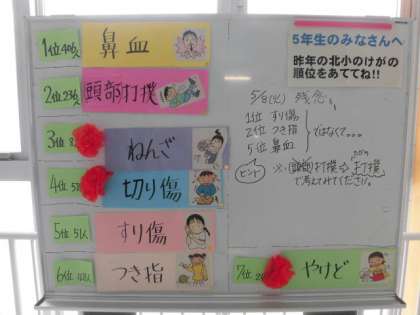 1位 406人 鼻血
2位 236人 頭部打撲
3位 ねんざ
4位 切り傷
5位 51人 すり傷
6位 つき指
7位 やけど
5年生のみなさんへ
昨年の北小のけがの
順位をあててね!!
5/8(火) 残念。
1位 すり傷
2位 つき指
5位 鼻血
ではなくて。。。
ヒント
※頭部打撲⇒打撲
で考えてみてください。